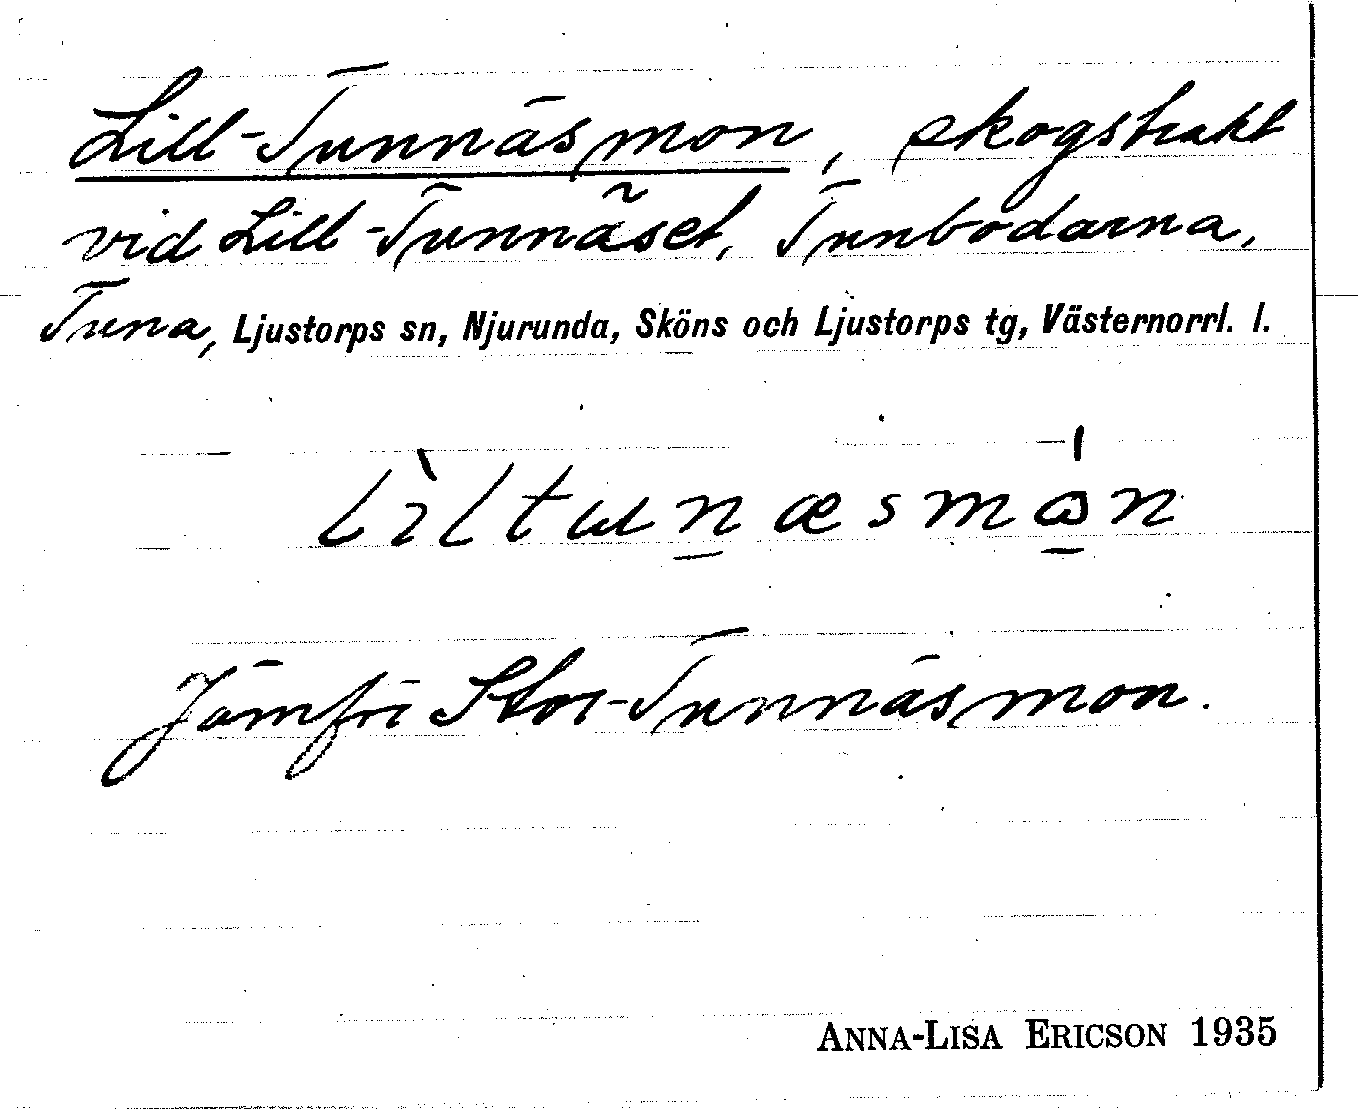 Lill-Tunnäsmon, skogstrakt
vid Lill-Tunnäset, Tunbodarna,
Tuna, Ljustorps sn, Njurunda, Sköns och Ljustorps tg, Västernorrl. l.
Jämför Stor-Tunnäsmon.
ANNA-LISA ERICSON 1935